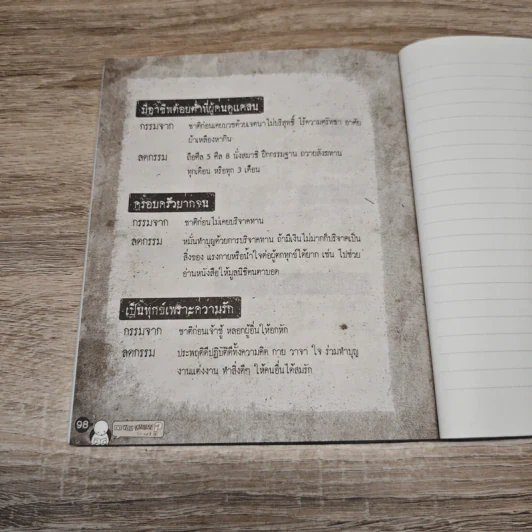 มีอาชีพด้อยค่าที่ผู้คนดูแคลน
กรรมจาก ชาติก่อนเคยบวชด้วยเจตนาไม่บริสุทธิ์ ไร้ความศรัทธา อาศัย
ผ้าเหลืองหากิน
ลดกรรม ถือศีล 5 ศีล 8 นั่งสมาธิ ฝึกกรรมฐาน ถวายสังฆทาน
ทุกเดือน หรือทุก 3 เดือน
ครอบครัวยากจน
กรรมจาก ชาติก่อนไม่เคยบริจาคทาน
ลดกรรม หมั่นทำบุญด้วยการบริจาคทาน ถ้ามีเงินไม่มากก็บริจาคเป็น
สิ่งของ แรงกายหรือน้ำใจต่อผู้ตกทุกข์ได้ยาก เช่น ไปช่วย
อ่านหนังสือให้มูลนิธิคนตาบอด
เป็นทุกข์เพราะความรัก
กรรมจาก ชาติก่อนเจ้าชู้ หลอกผู้อื่นให้อกหัก
ลดกรรม ประพฤติดีปฏิบัติดีทั้งความคิด กาย วาจา ใจ ร่วมทำบุญ
งานแต่งงาน ทำสิ่งดีๆ ให้คนอื่นได้สมรัก
98